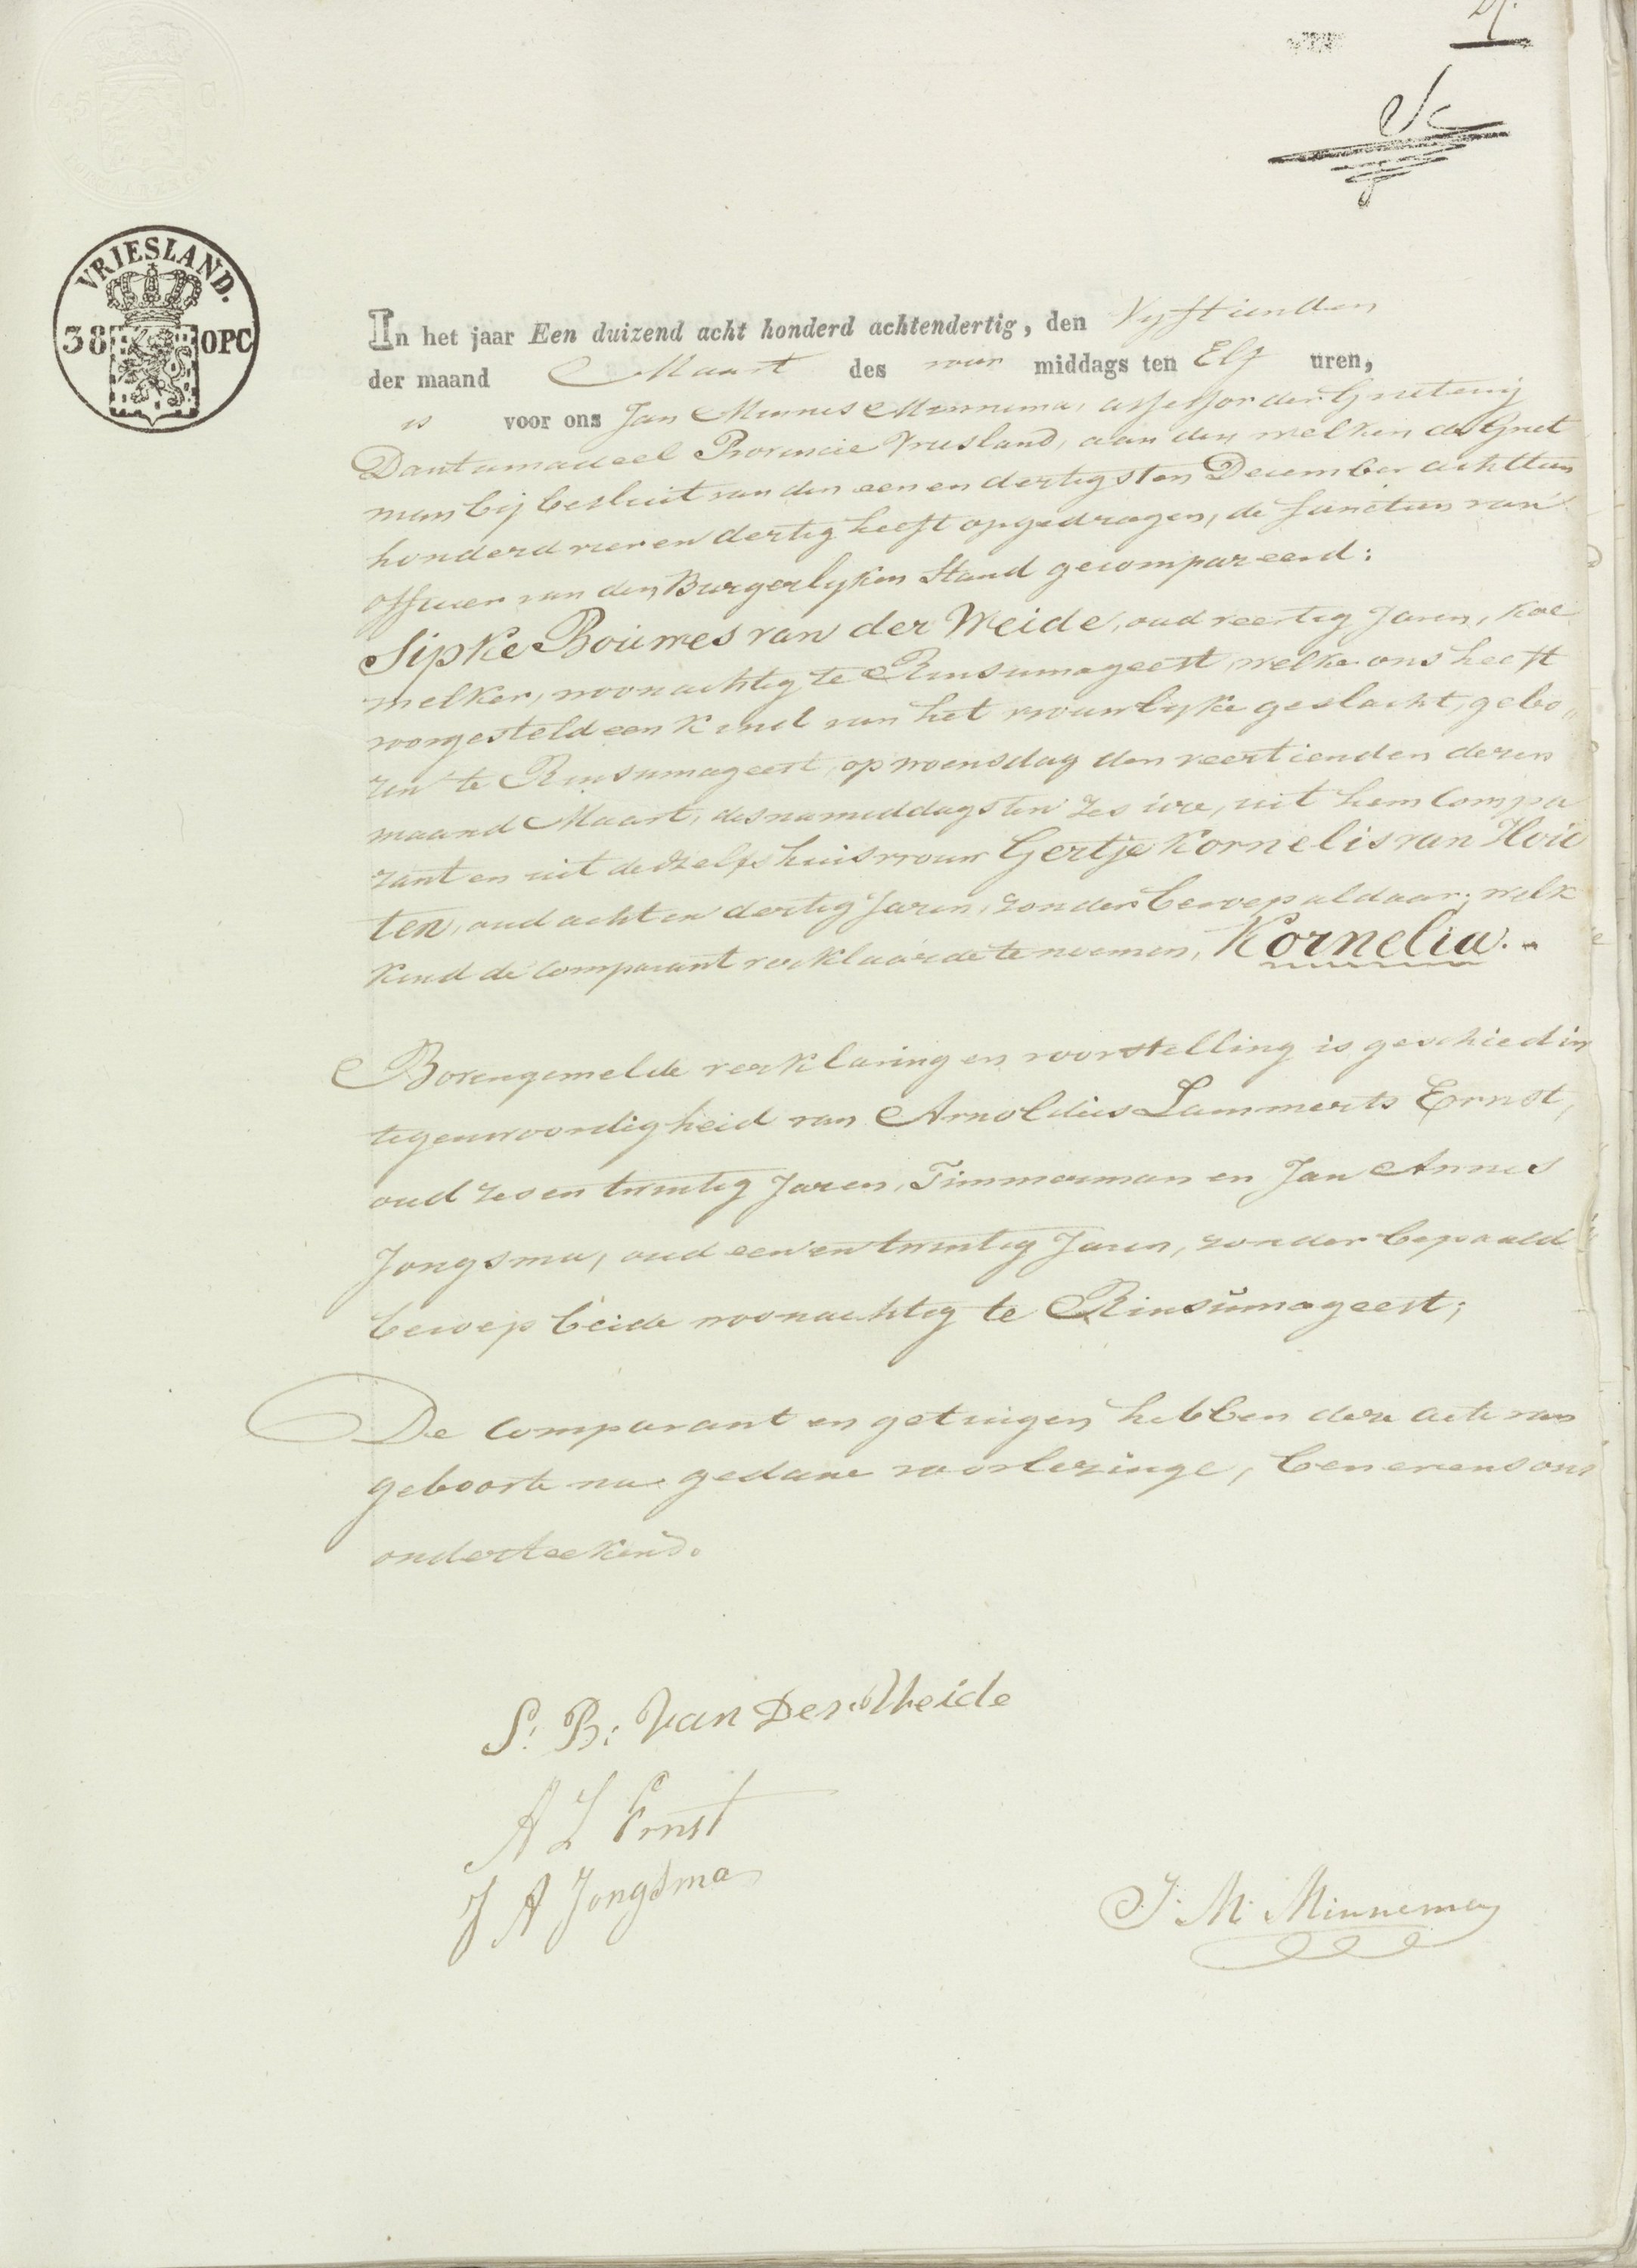 VRIESLAND.
38 OPC
In het jaar Een duizend acht honderd achtendertig, den Vyftienden
der maand Maart des voor middags ten Elf uren,
is voor ons Jan Minnes Minnema, assessor der Grietenij
Dantumadeel Provincie Vriesland, aan den welken de Griet
man bij besluit van den een en dertigsten December achttien
honderd vier en dertig heeft opgedragen, de functien van
officier van den Burgerlyken Stand gecompareerd:
Sipke Bouwes van der Weide, oud veertig Jaren, koe
melker, woonachtig te Rinsumageest, welke ons heeft
voorgesteld een kind van het vrouwlyke geslacht, gebo„
ren te Rinsumageest, op woensdag den veertienden dezer
maand Maart, des namiddags ten zes ure, uit hem Compa
rant en uit deszelfs huisvrouw Gertje Kornelis van Hou
ten, oud acht en dertig Jaren, zonder beroep aldaar; welk
kind de comparant verklaarde te noemen, Kornelia.
Bovengemelde verklaring en voorstelling is geschied in
tegenwoordigheid van Arnoldus Lammerts Ernst,
oud zes en twintig Jaren, Timmerman en Jan Annes
Jongsma, oud een en twintig Jaren, zonder bepaald
beroep beide woonachtig te Rinsumageest;
De Comparant en getuigen hebben deze acte van
geboorte na gedane voorlezinge, benevens ons
onderteekend.
S. B. Van Der Weide
A L Ernst
J A Jongsma
J. M. Minnema